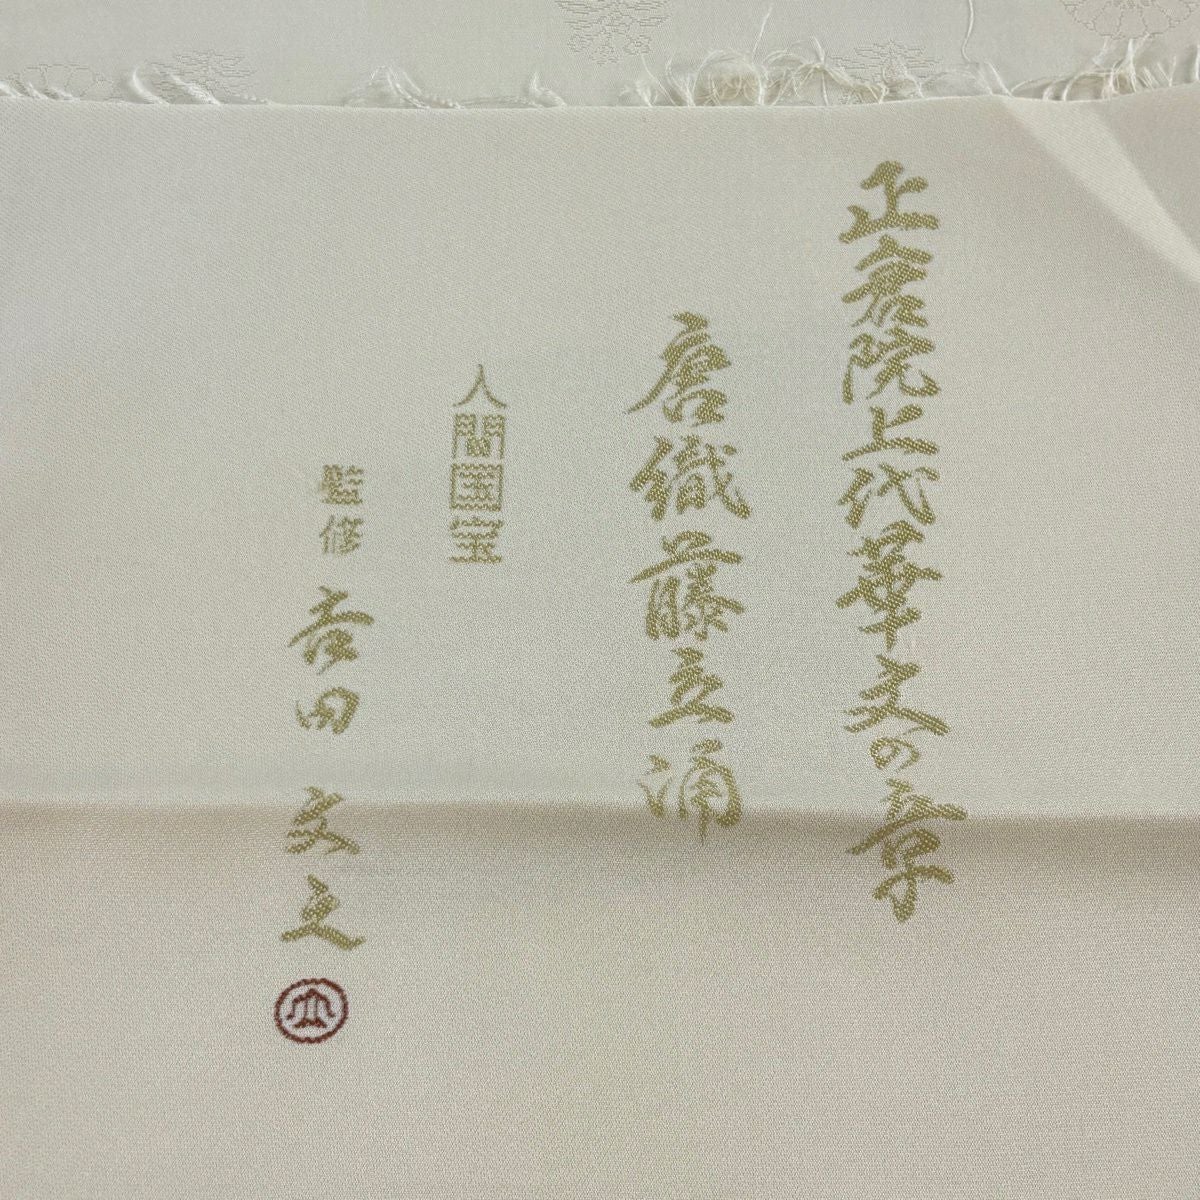 正倉院上代華文の章
唐織藤立涌
人間国宝
監修 吉田文之